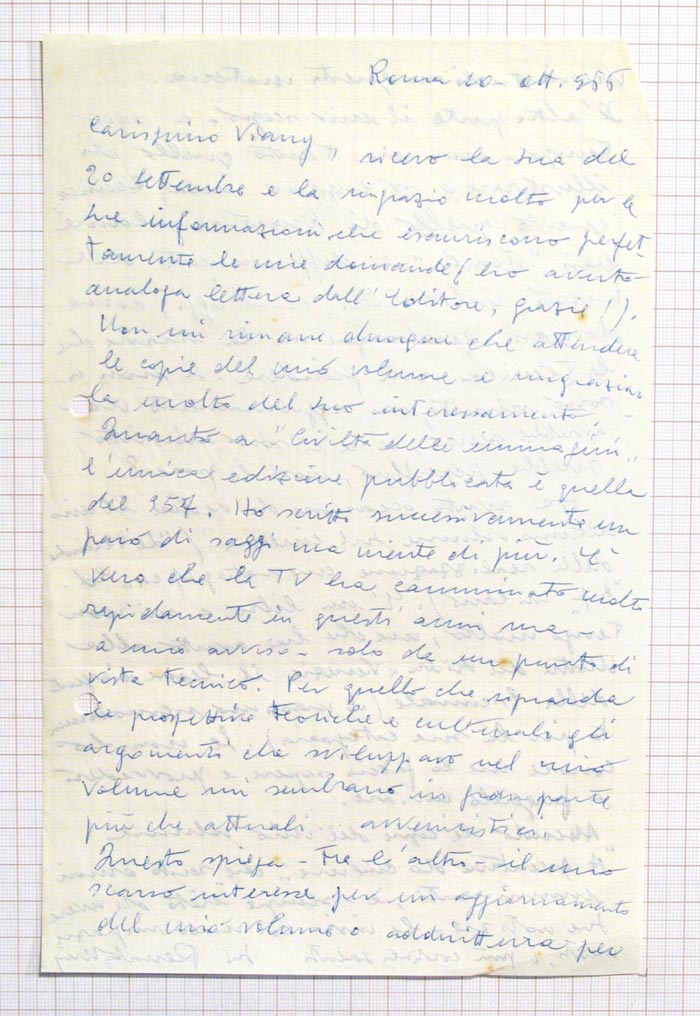 Roma 20 - ott. 955
Carissimo Viany, ricevo la sua del
20 settembre e la ringrazio molto per le
sue informazioni che esauriscono perfet-
tamente le mie domande (ho avuto
analoga lettera dall'Editore, grazie!).
Non mi rimane dunque che attendere
le copie del mio volume e ringraziar
la molto del suo interessamento.
Quanto a "Civiltà delle immagini"
l'unica edizione pubblicata è quella
del 957. Ho scritto successivamente un
paio di saggi ma niente di più. È
vero che la TV ha camminato molto
rapidamente in questi anni ma -
a mio avviso - solo da un punto di
vista tecnico. Per quello che riguarda
le prospettive teoriche e culturali gli
argomenti che sviluppavo nel mio
volume mi sembrano in gran parte
più che attuali avveniristici.
Questo spiega - tra l'altro - il mio
scarso interesse per un aggiornamento
del mio volume o addirittura per